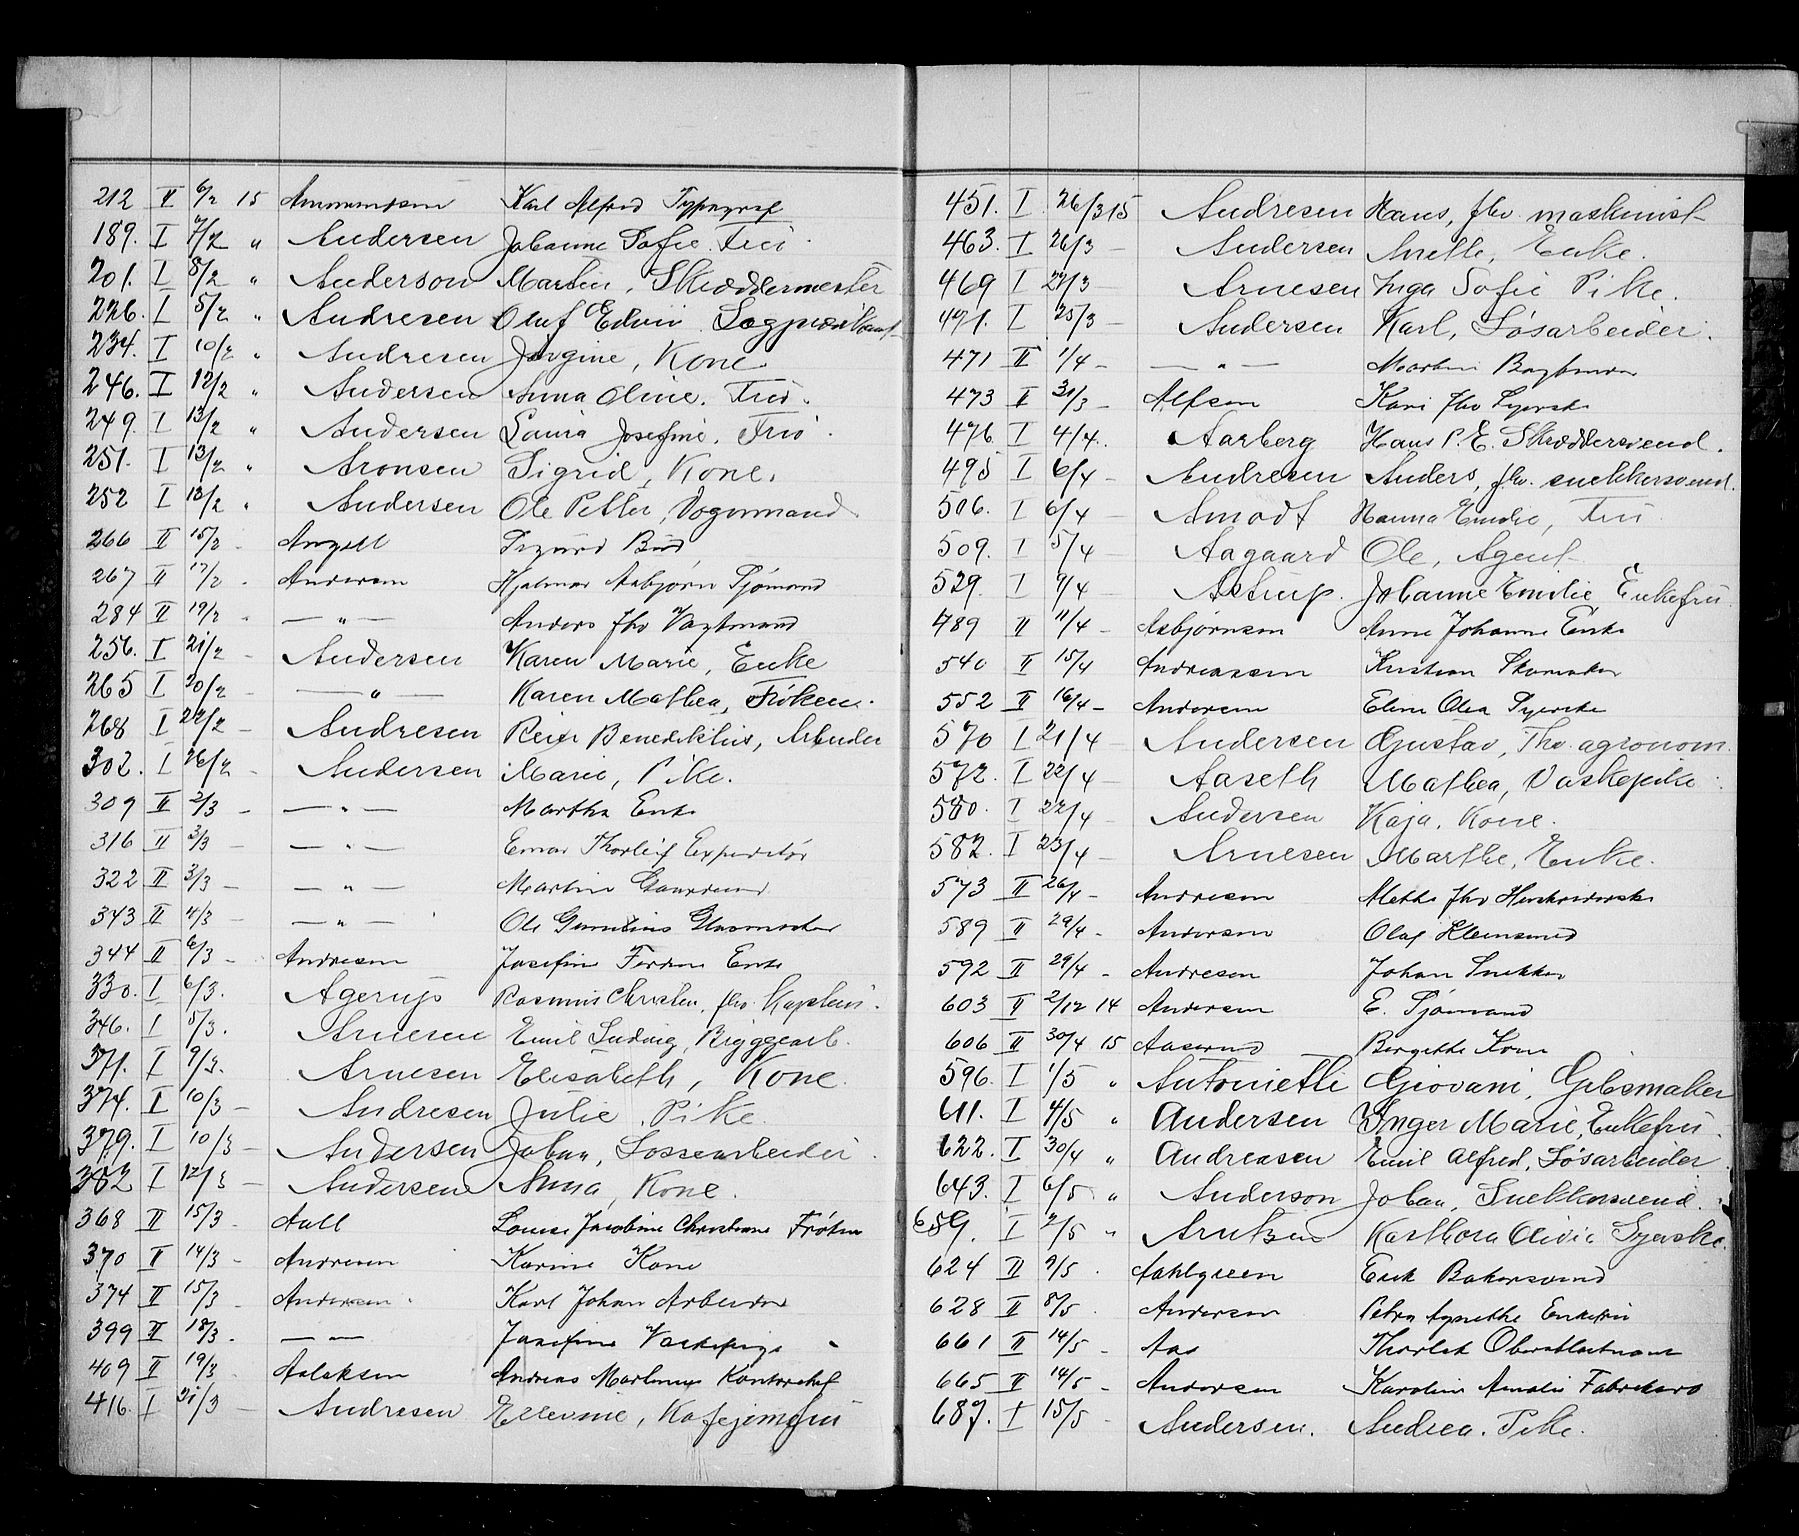 212 II 6/2 15 Ammundsen Karl Alfred Typograf
189. I 7/2 " Andersen Johanne Sofie. Fru.
201. I 8/2 " Anderson Martin, Skræddermester
226. I 5/2 " Andresen Oluf Edvin
234. I 10/2 " Andresen Jørgine, Kone
246. I 12/2 " Andersen Anna Oline. Fru.
249. I 13/2 " Andersen Laura Josefine. Fru.
251. I 13/2 " Aronsen Sigrid, Kone.
252 I 13/2 " Andersen Ole Petter, Vognmand
266 II 15/2 - Angell Sigurd Bud
267 II 17/2 - Andersen Hjalmar Asbjørn Sjømand
284 II 19/2 - — " — Anders fhv Vagtmand
256. I 21/2 - Andersen Karen Marie, Enke
265 I 20/2 - — " — Karen Mathea, Frøken.
268 I 22/2 - Andresen Reier Benediktus, Arbeider
302. I 26/2 - Andersen Marie, Pike.
309 II 2/3 - — " — Martha Enke
316 II 3/3 - — " — Einar Thorleif Expeditør
322 II 3/3 - — " — Martin Gaardmand
343 II 4/3 - — " — Ole Gunelius Glasmester
344 II 6/3 - Andresen Josefine Enke
330. I 6/3. Agerup Rasmus Christen, fhv. Kaptein.
346. I 5/3. Arnesen Emil Ludvig, Biggearb.
371. I 9/3. Arnesen Elisabeth, Kone.
374. I 10/3 - Andresen Julie, Pike.
379. I 10/3 - Andersen Johan, Lossearbeider.
382 I 12/3 - Andersen Anna, Kone.
368 II 15/3 - Aall Louise Jacobine Christiane Frøken
370 II 14/3 - Andresen Karine Kone
374 II 15/3 - Andersen Karl Johan Arbeider
399 II 18/3 - — — Josefine Vaskepige
409 II 19/3 - Aslaksen Andreas Martinus Kontorchef
416. I 21/3 - Andresen Ellevine, Kafejomfru
451. I 26/3 15 Andresen Hans, fhv. maskinist
463. I 26/3 - Andersen Anette, Enke.
469 I 27/3 - Arnesen Inga Sofie Pike.
471. I 25/3 - Andersen Karl, Løsarbeider.
471 II 1/4 - — " — Martin Bagtmann
473 II 31/3 - Alfsen Kari fhv Syerske
476. I 4/4. Aarberg Hans P. E. Skræddersvend.
495 I 6/4 - Andresen Anders, fhv. snekkersvend.
506. I 6/4 - Amodt Hanna Emilie, Fru
509. I 5/4 - Aagaard Ole, Agent
529. I 9/4 - Astrup. Johanne Emilie Enkefru.
489 II 11/4 - Asbjørnsen Anne Johanne Enke
540 II 15/4 Andreassen Kristian Skomaker
552 II 16/4 - Andersen Eline Olea Syerske
570 I 21/4 - Andersen Gustav, Fhv. agronom.
572. I 22/4 - Aaseth Mathea, Vaskepike
580. I 22/4 - Andersen Kaja, Kone.
582. I 23/4 - Arnesen Marthe, Enke.
573 II 26/4 - Andresen Mette fhv
589 II 29/4 - Andersen Olaf
592 II 29/4 - Andresen Johan Snekker
603 II 2/12 14 Andersen E. Sjømand
606 II 30/4 15 Aaserud Bergitte Kone
596. I 1/5 " Antonietti Giovani, Gibsmaker
611. I 4/5 " Andersen Inger Marie, Enkefru.
622. I 30/4 " Andreasen Emil Alfred, Løsarbeider
643. I 6/5 " Anderson Johan, Snekkersvend.
659. I 7/5 " Arntzen Karthora Olivia Syerske.
624 II 9/5 - Aahlgreen Erik Bakersvend
628 II 8/5 Andersen Petra Agnethe Enkefru
661 II 14/5 - Aas Thorleif Oberstløitnant
665 II 14/5 - Andersen Karoline Amalie
687. I 15/5 - Andersen. Andrea. Pike.